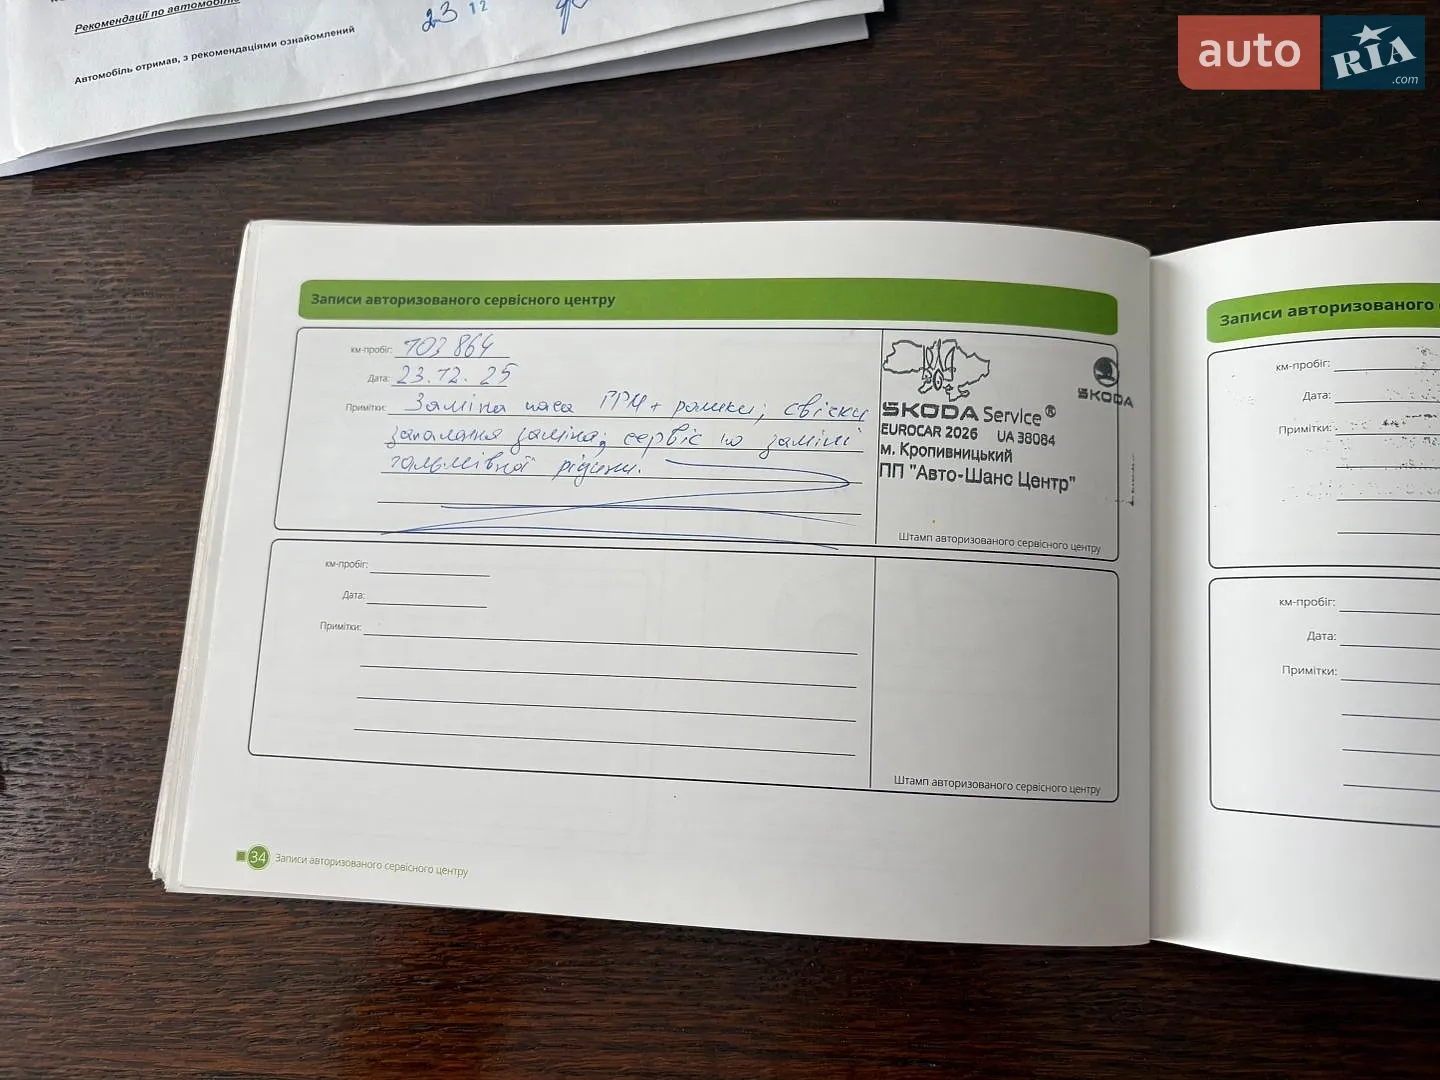 Рекомендації по автомобілю
23 12
Автомобіль отримав, з рекомендаціями ознайомлений
auto RIA .com
Записи авторизованого сервісного центру
км-пробіг: 103 864
Дата: 23.12.25
Примітки: Заміна паса ГРМ + ролики; свічки
запалання заміна; сервіс по заміні
гальмівної рідини.
SKODA Service®
EUROCAR 2026 UA 38084
м. Кропивницький
ПП "Авто-Шанс Центр"
SKODA
Штамп авторизованого сервісного центру
км-пробіг:
Дата:
Примітки:
Штамп авторизованого сервісного центру
34 Записи авторизованого сервісного центру
Записи авторизованого
км-пробіг:
Дата:
Примітки:
км-пробіг:
Дата:
Примітки: